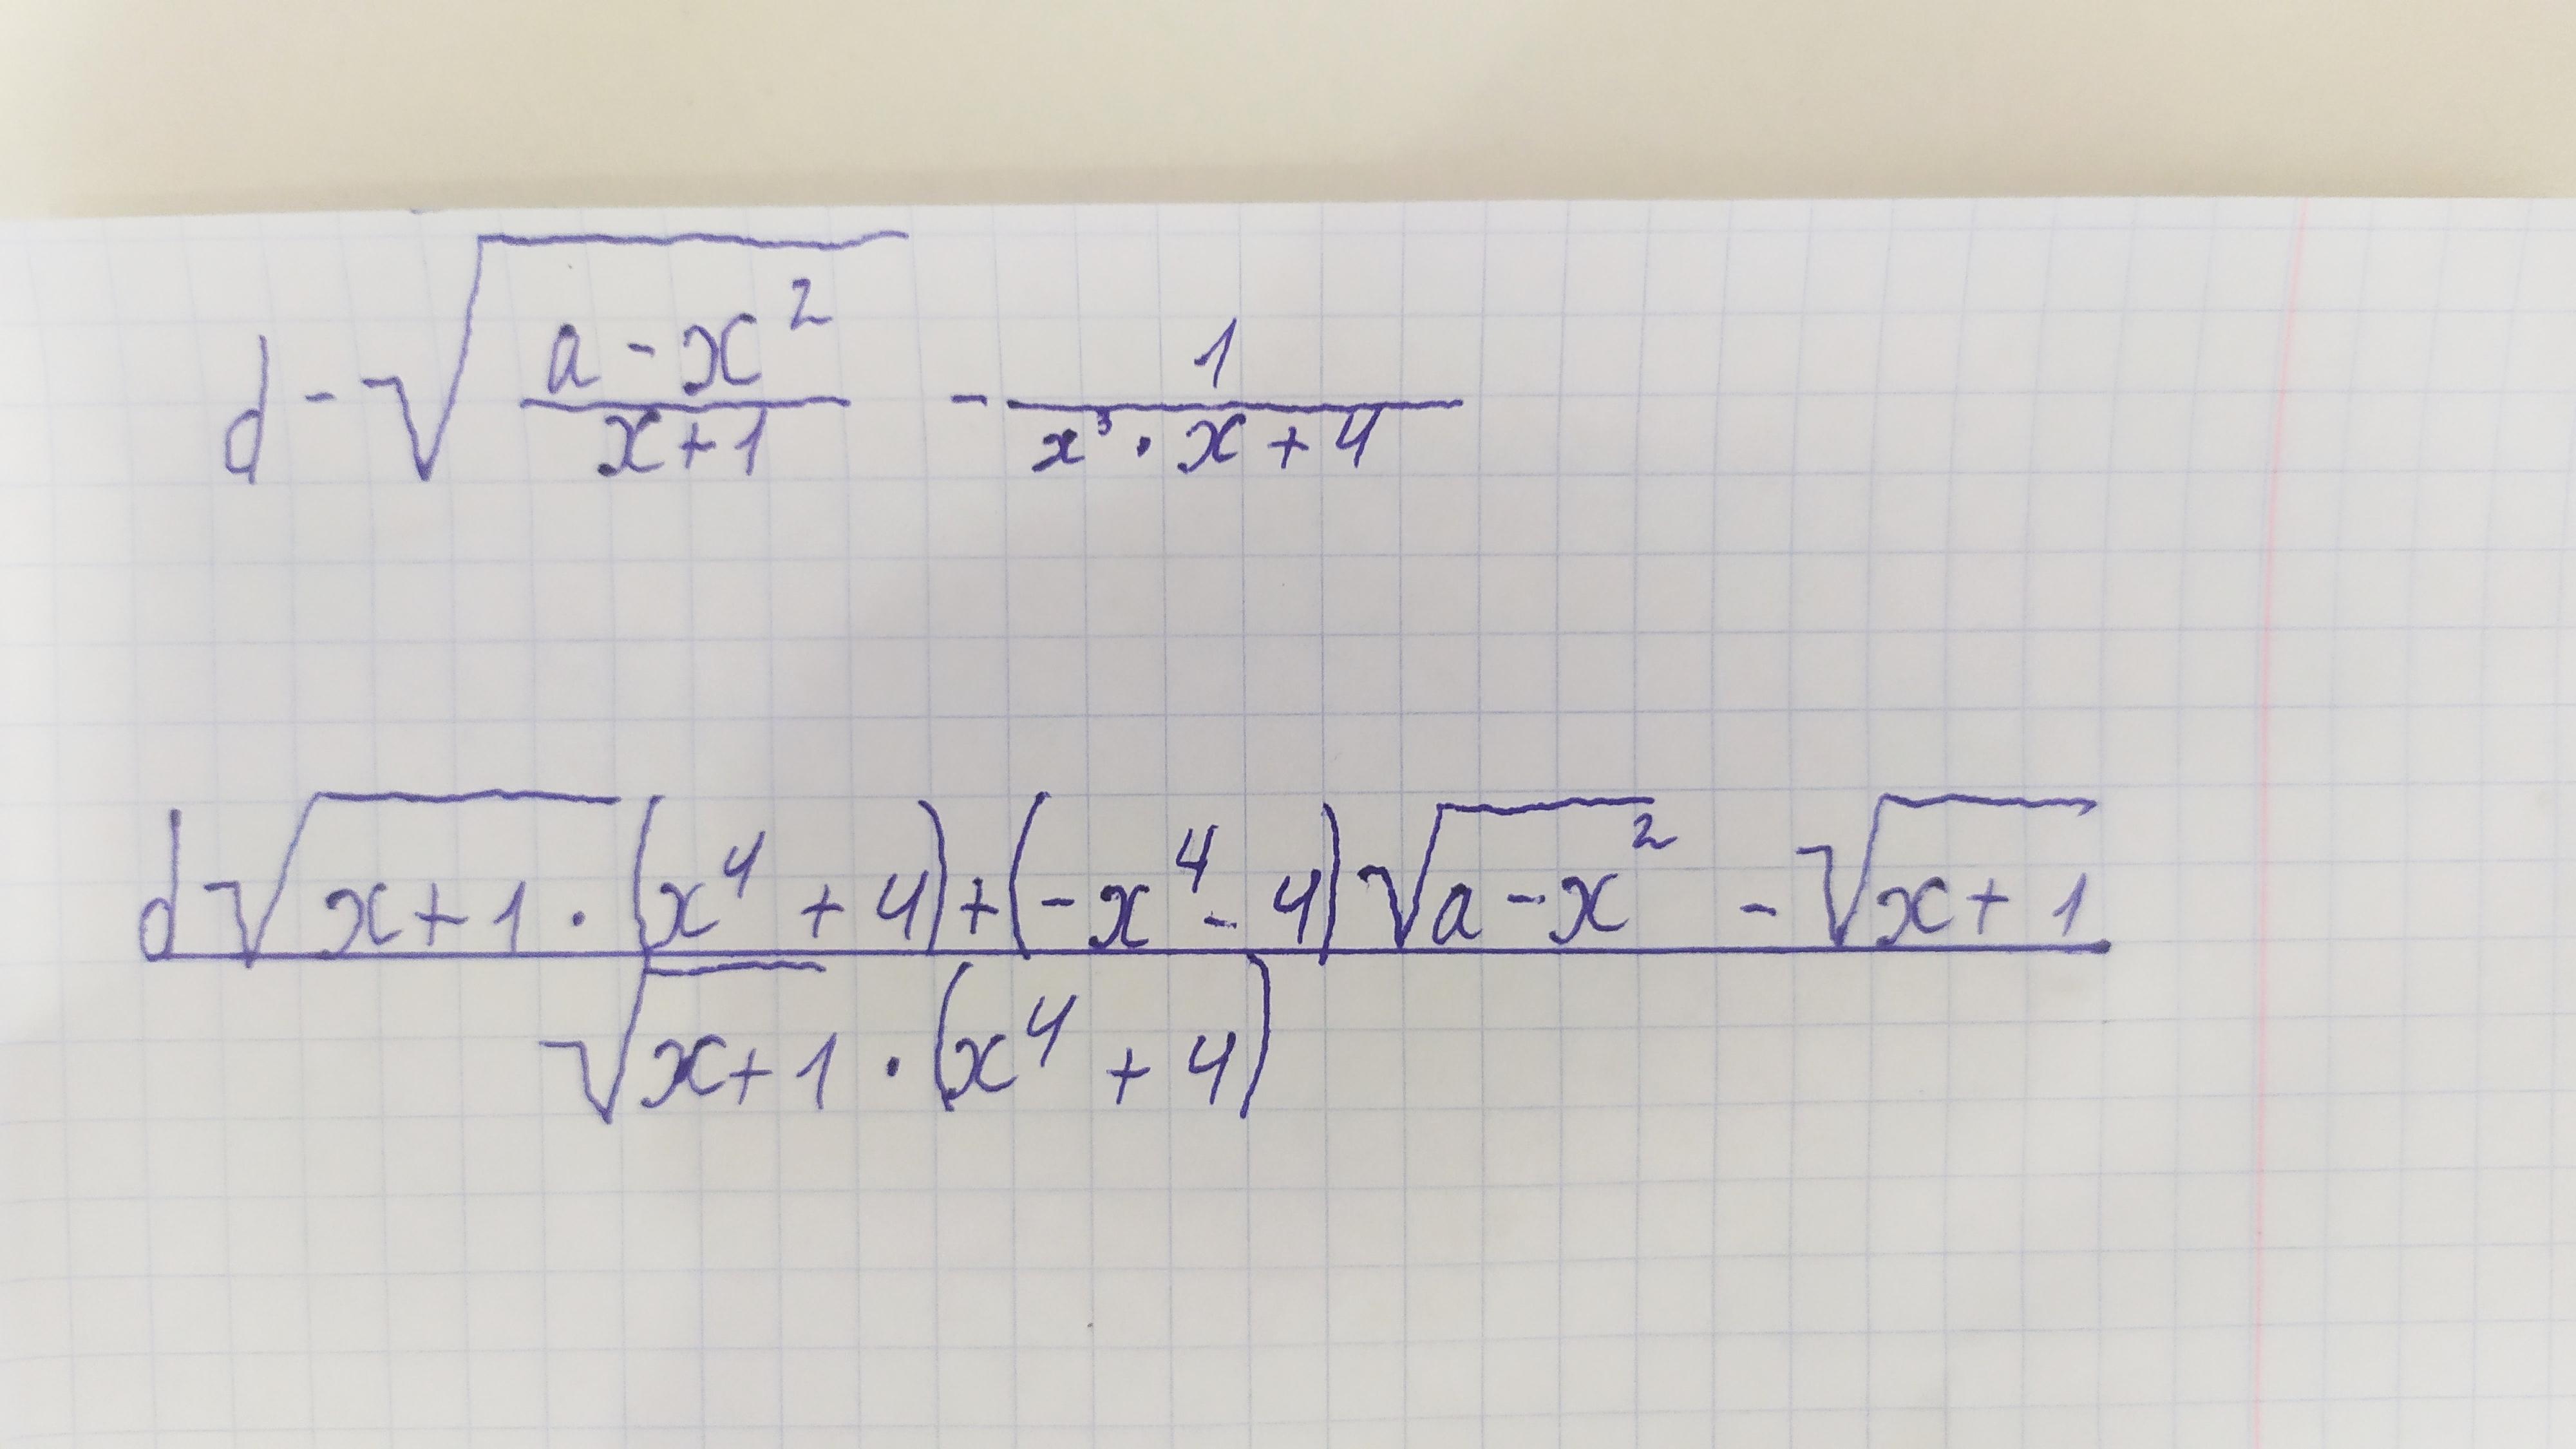 d - √((a - x²)/(x + 1)) - 1/(x³ · x + 4)
(d√(x + 1) · (x⁴ + 4) + (-x⁴ - 4)√(a - x²) - √(x + 1))/(√(x + 1) · (x⁴ + 4))